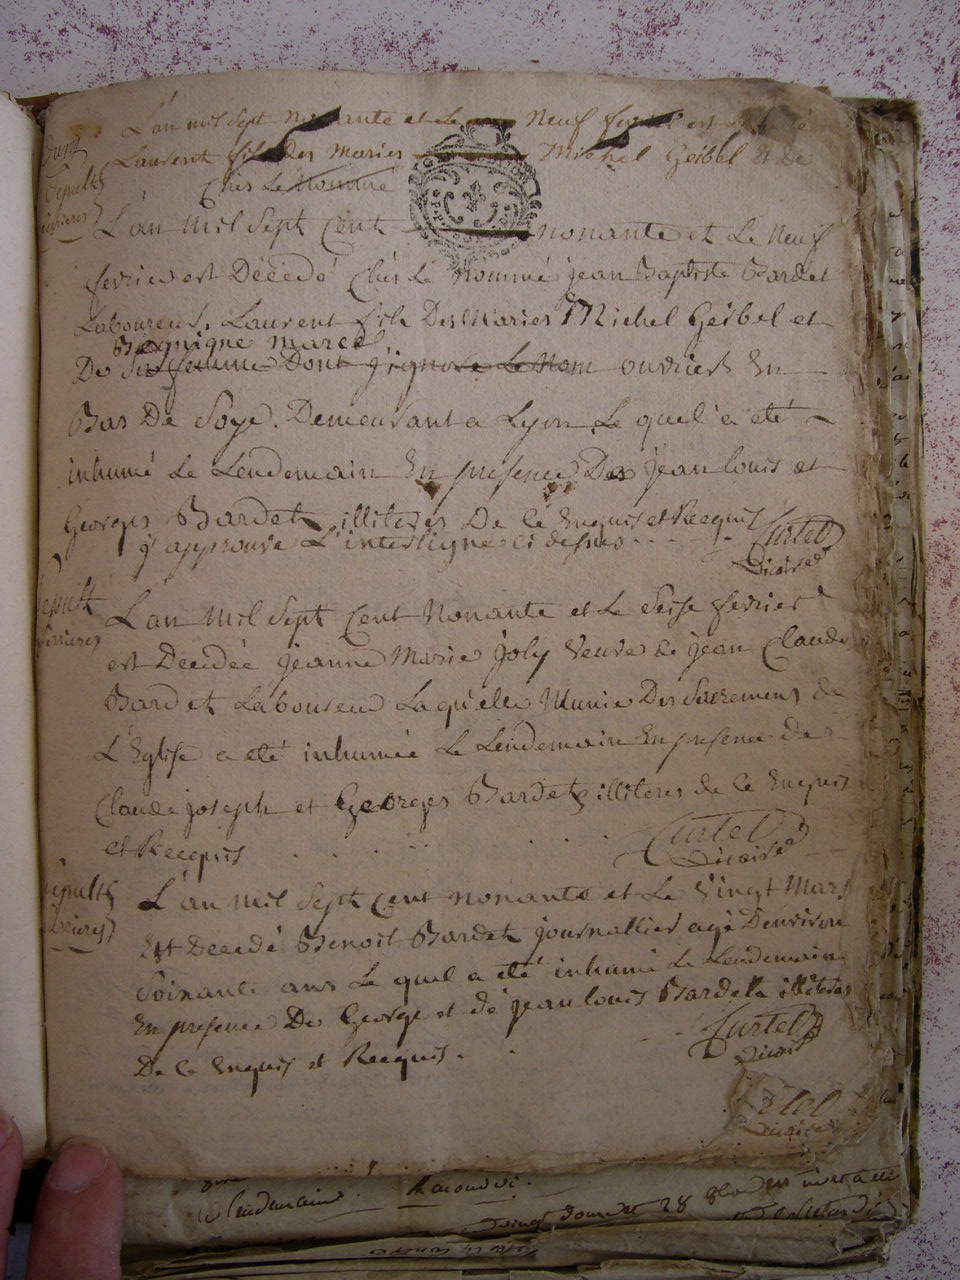 L'an mil sept nonante et le neuf fevrier est
Laurent fils des maries Michel Geibel et de
Chés Le Nommé
Sepult
L'an mil sept cent nonante et Le Neuf
fevrier est Décédé Chés Le nommé jean Baptiste Bardet
Laboureur, Laurent fils Des Maries Michel Geibel et
Benigne marcel
De sa femme Dont j'ignore Le Nom ouvriers En
Bas De Soye. Demeurant a Lyon Le quel a eté
inhumé Le Lendemain En presence Des jean louis et
Georges Bardet illiteres De Ce Enquis et Recquis Curtel
j'approuve L'interligne ci dessus Vicaire
Sepult
ferrieres
L'an Mil Sept Cent Nonante et Le Seise fevrier
est Decedée jeanne Marie joly Veuve de jean Claude
Bardet Laboureur Laquelle Munie Des Sacremens de
L'Eglise a eté inhumée Le Lendemain En presence de
Claude joseph et Georges Bardet illiteres de Ce Enquis
et Recquis Curtel
Vicaire
Sepult
L'an mil Sept Cent nonante et Le Vingt Mars
Est Decedé Benoit Bardet journallier agé Denviron
Soixante ans Le quel a eté inhumé Le Lendemain
En presence De George et de jean louis Bardet illiteres
De Ce Enquis et Recquis. Curtel
Vicaire
Vicaire
Le lendemain
28